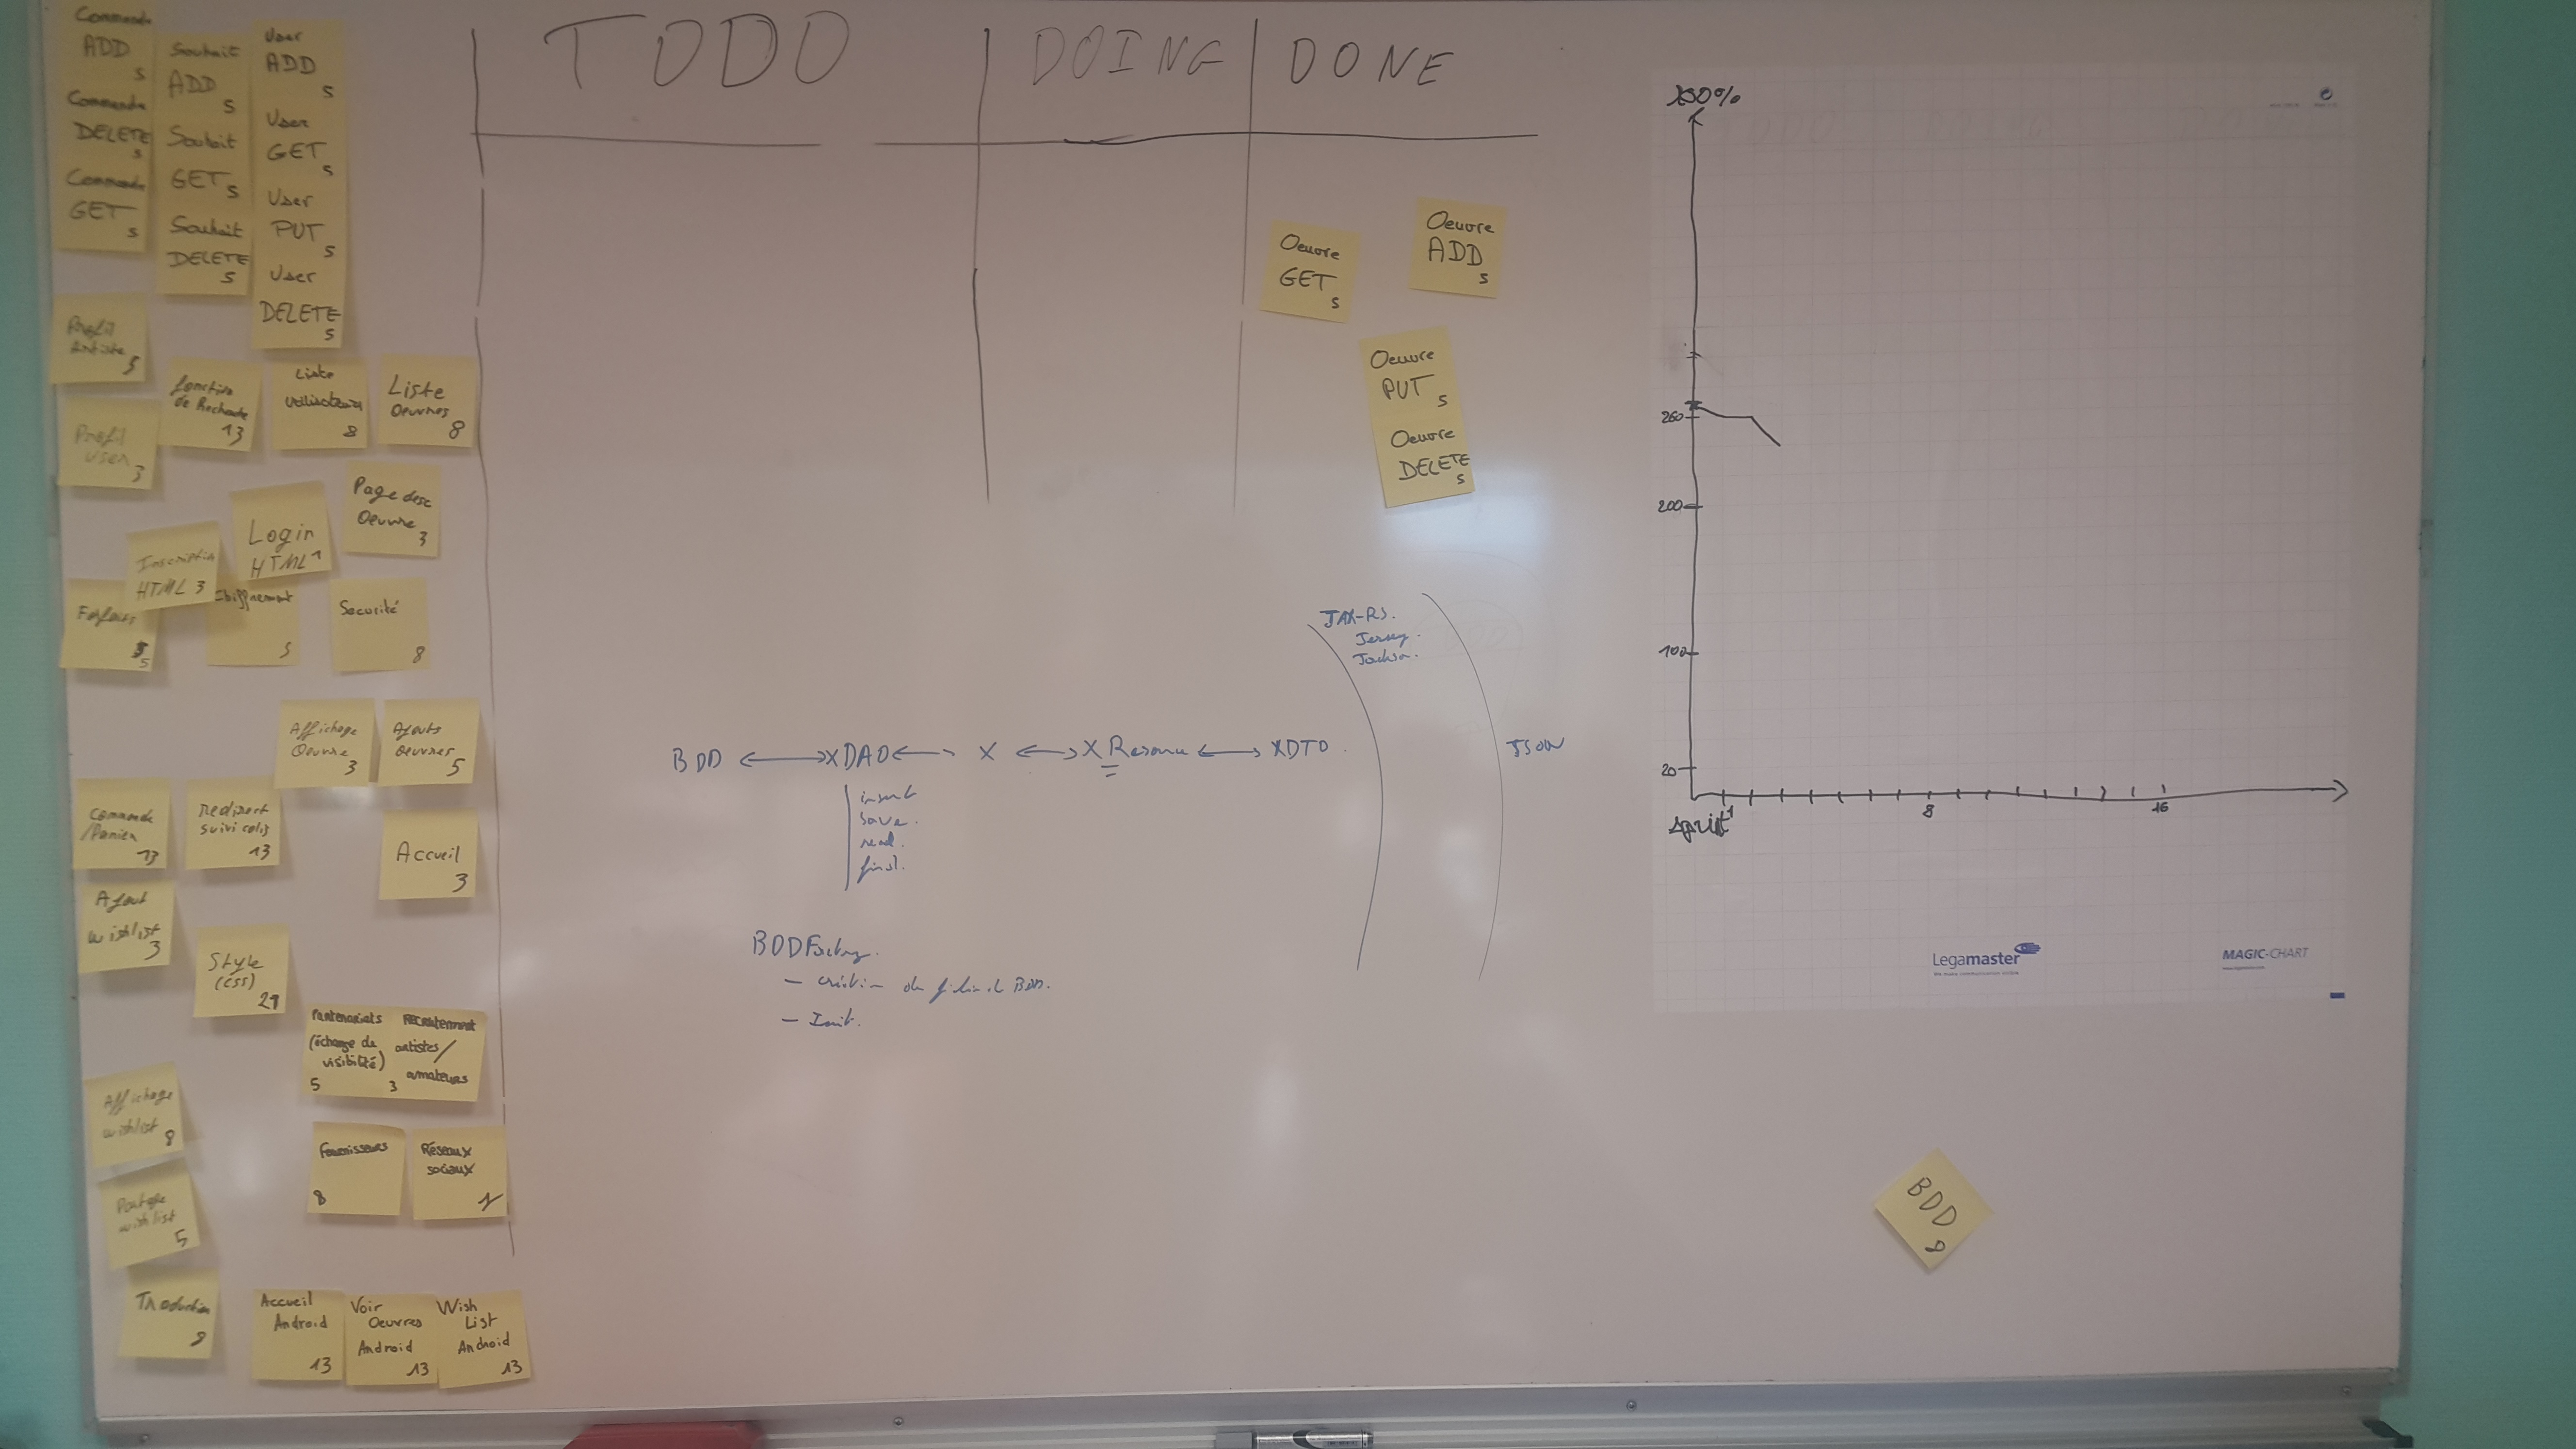 Commande
ADD
5
Commande
DELETE
5
Commande
GET
5
Souhait
ADD
5
Souhait
GET 5
Souhait
DELETE
5
User
ADD
5
User
GET
5
User
PUT
5
User
DELETE
5
Profil
Artiste
5
fonction
de Recherche
13
Liste
utilisateurs
8
Liste
Oeuvres
8
Profil
User
3
Login
HTML 1
Page desc
Oeuvre
3
Inscription
HTML 3
Forfaits
5
Chiffrement
5
Securité
8
Affichage
Oeuvre
3
Ajouts
Oeuvres
5
Commande
/Panier
13
Redirect
suivi colis
13
Accueil
3
Ajout
wishlist
3
Style
(CSS)
21
Partenariats
(échange de
visibilité)
5
Recrutement
artistes/
amateurs
3
Affichage
wishlist
8
Fournisseurs
8
Réseaux
sociaux
1
Partage
wishlist
5
Traduction
8
Accueil
Android
13
Voir
Oeuvres
Android
13
Wish
List
Android
13
TODO
DOING
DONE
Oeuvre
GET
5
Oeuvre
ADD
5
Oeuvre
PUT
5
Oeuvre
DELETE
5
JAX-RS.
Jersey.
Jackson.
BDD XDAO X X Resource XDTO
JSON
insert
save.
read.
find.
BDDFactory.
- création du BDD.
- Init.
100%
260
200
100
20
1
8
16
Sprint
Legamaster
MAGIC-CHART
BDD
8